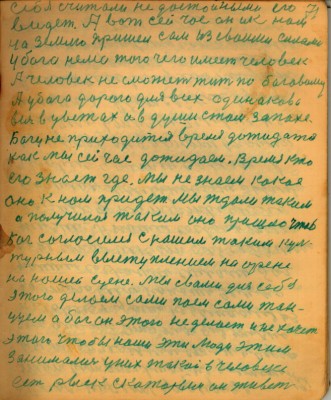 себя считали не достойными его
видет. А вот сейчас он ик нам
на землю пришел сам из своими силами
У бога нема того чего имеет человек
А человек не сможет жит по боговому
А у бога дорога для всех одинакова
вся в цветах а в души стоит запахе.
Богу не приходится время дожидат
как мы сейчас дожидаем. Время кто
его знает где. Мы не знаем какое
оно к нам придет мы ждали таким
а получилос таким оно пришло чтоб
бог согласился с нашим таким кул
турным выступлением на
на нашей сцене. Мы сами для себе
этого делаем сами поем сами тан
цуем а бог он этого не делает и не хочет
этого чтобы наши эти люди этим
занималис у них такой в человека
ест риск с каторым он живет